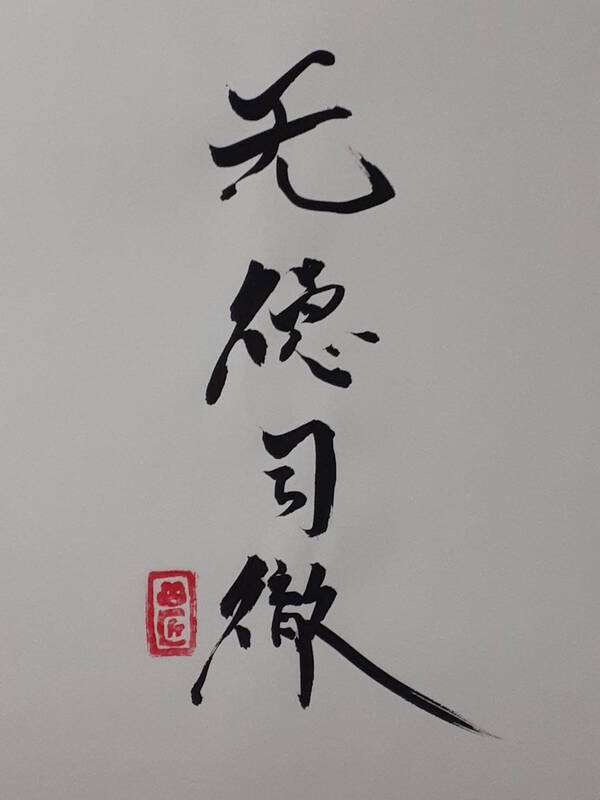 无德司徹